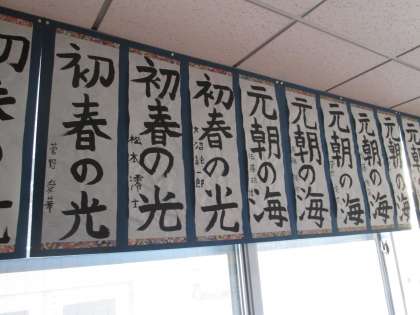 初春の光
初春の光
菅野 栄華
初春の光
松本 澪士
初春の光
元朝の海
元朝の海
元朝の海
元朝の海
元朝の海